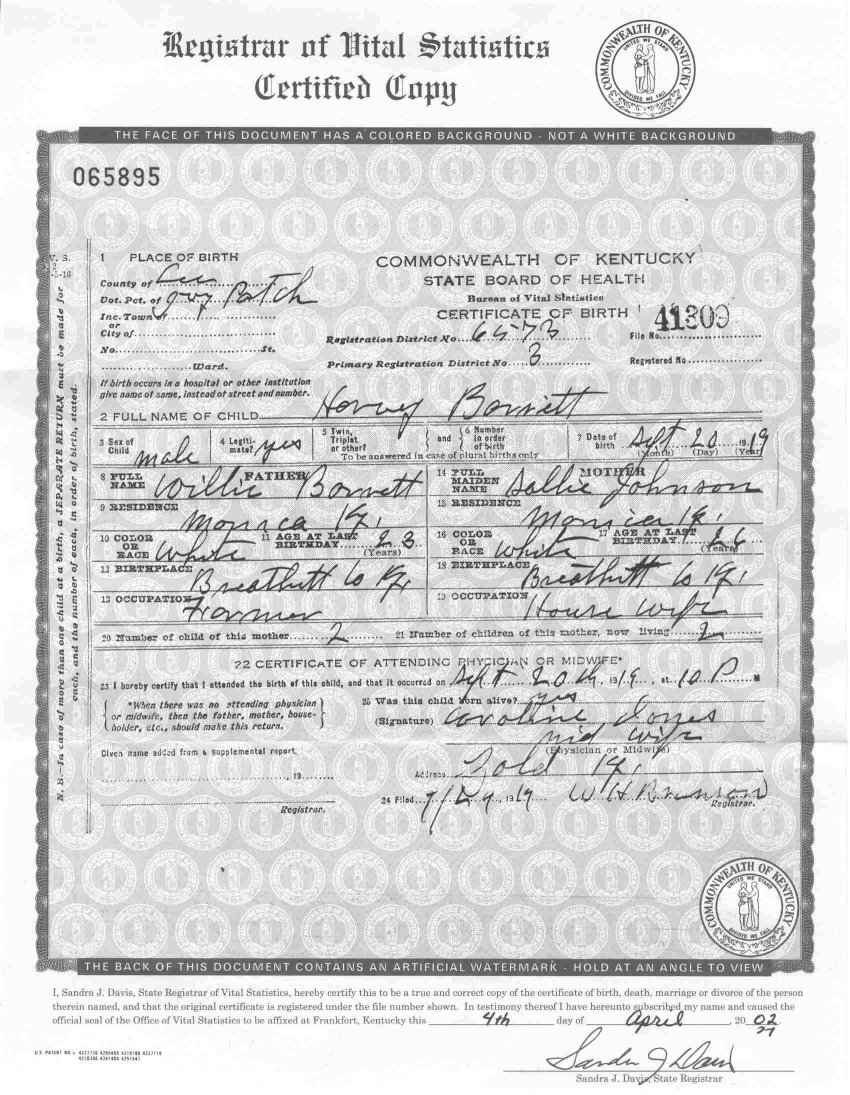 Registrar of Vital Statistics
Certified Copy
COMMONWEALTH OF KENTUCKY
UNITED WE STAND
DIVIDED WE FALL
THE FACE OF THIS DOCUMENT HAS A COLORED BACKGROUND - NOT A WHITE BACKGROUND
065895
V. S.
1 PLACE OF BIRTH
County of Lee
Vot. Pct. of Patch
Inc. Town of
or
City of
No. St,
Ward.
If birth occurs in a hospital or other institution
give name of same, instead of street and number.
COMMONWEALTH OF KENTUCKY
STATE BOARD OF HEALTH
Bureau of Vital Statistics
CERTIFICATE OF BIRTH
File No. 41309
Registration District No. 6573
Primary Registration District No. 3
Registered No.
2 FULL NAME OF CHILD Harvey Barnett
3 Sex of Child male
4 Legitimate? yes
5 Twin, Triplet or other?
and
6 Number in order of birth
To be answered in case of plural births only
7 Date of birth Sept 20 1919
(Month) (Day) (Year)
8 FULL NAME FATHER Willie Barnett
14 FULL MAIDEN NAME MOTHER Sallie Johnson
9 RESIDENCE Monaca Ky,
15 RESIDENCE Monica Ky,
10 COLOR OR RACE White
11 AGE AT LAST BIRTHDAY 23 (Years)
16 COLOR OR RACE White
17 AGE AT LAST BIRTHDAY 26 (Years)
13 BIRTHPLACE Breathitt Co Ky,
18 BIRTHPLACE Breathitt Co Ky,
13 OCCUPATION Farmer
13 OCCUPATION House wife
20 Number of child of this mother 2 21 Number of children of this mother, now living 2
22 CERTIFICATE OF ATTENDING PHYSICIAN OR MIDWIFE*
23 I hereby certify that I attended the birth of this child, and that it occurred on Sept. 20th, 1919, at 10 P M
*When there was no attending physician or midwife, then the father, mother, householder, etc., should make this return.
25 Was this child born alive? yes
(Signature) Caroline Jones
mid wife
(Physician or Midwife)
Given name added from a supplemental report.
, 19
Registrar.
Address Ky,
24 Filed , 1919 Registrar.
N. B.—In case of more than one child at a birth, a SEPARATE RETURN must be made for
each, and the number of each, in order of birth, stated.
COMMONWEALTH OF KENTUCKY
UNITED WE STAND
DIVIDED WE FALL
THE BACK OF THIS DOCUMENT CONTAINS AN ARTIFICIAL WATERMARK - HOLD AT AN ANGLE TO VIEW
I, Sandra J. Davis, State Registrar of Vital Statistics, hereby certify this to be a true and correct copy of the certificate of birth, death, marriage or divorce of the person
therein named, and that the original certificate is registered under the file number shown. In testimony thereof I have hereunto subscribed my name and caused the
official seal of the Office of Vital Statistics to be affixed at Frankfort, Kentucky this 4th day of April, 20 02.
Sandra J Davis
Sandra J. Davis, State Registrar